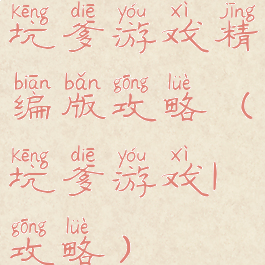 kēng diē yóu xì jīng
坑爹游戏精
biān bǎn gōng lüè
编版攻略（
kēng diē yóu xì
坑爹游戏|
gōng lüè
攻略）